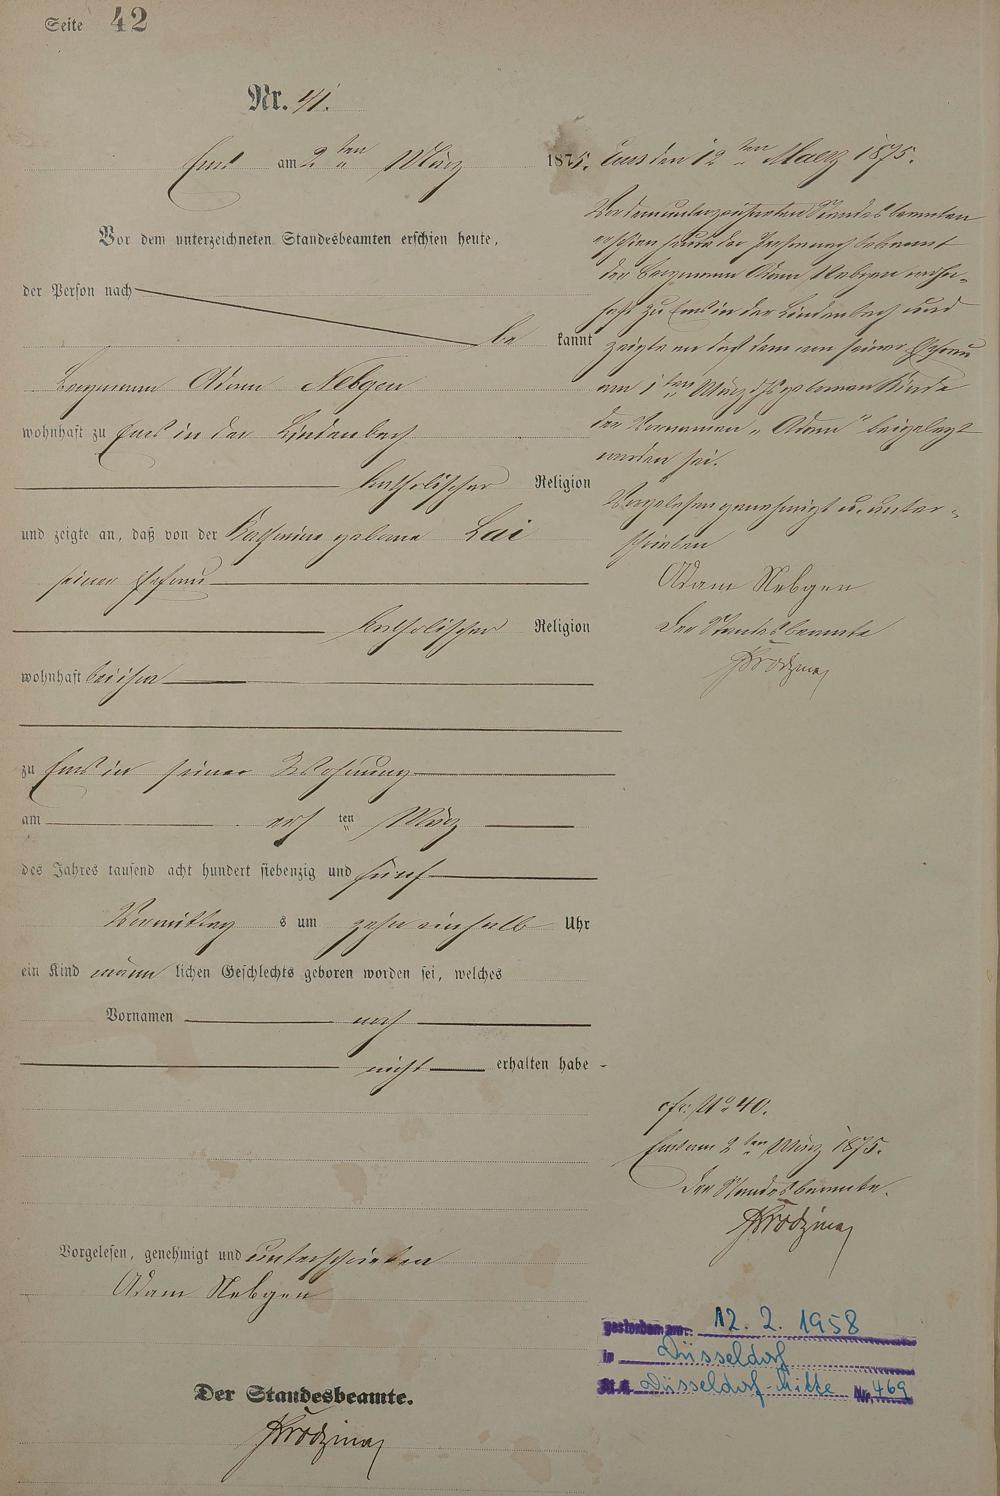 Seite 42
Nr. 41.
Ems am 2ten März 1875.
Vor dem unterzeichneten Standesbeamten erschien heute,
der Person nach
be kannt
Bergmann Adam Nebgen
wohnhaft zu Ems in der Lindenbach
katholischer Religion
und zeigte an, daß von der Katharina geborne Lai
seiner Ehefrau
katholischer Religion
wohnhaft bei ihm
zu Ems in seiner Wohnung
am ersten März
des Jahres tausend acht hundert siebenzig und fünf
Vormittag s um zehn einhalb Uhr
ein Kind männ lichen Geschlechts geboren worden sei, welches
Vornamen noch
nicht erhalten habe
Vorgelesen, genehmigt und unterschrieben
Adam Nebgen
Der Standesbeamte.
Ems den 12ten Maerz 1875.
Vor dem unterzeichneten Standesbeamten
erschien heute der Person nach bekannt
der Bergmann Adam Nebgen wohn-
haft zu Ems in der Lindenbach und
zeigte an daß dem von seiner Ehefrau
am 1ten März geborenen Kinde
der Vornamen „Adam" beigelegt
worden sei.
Vorgelesen genehmigt u. unter-
schrieben
Adam Nebgen
Der Standesbeamte
cfr. No 40.
Ems am 2ten März 1875.
Der Standesbeamte.
gestorben am: 12. 2. 1958
in Düsseldorf
St.A. Düsseldorf-Mitte Nr. 469